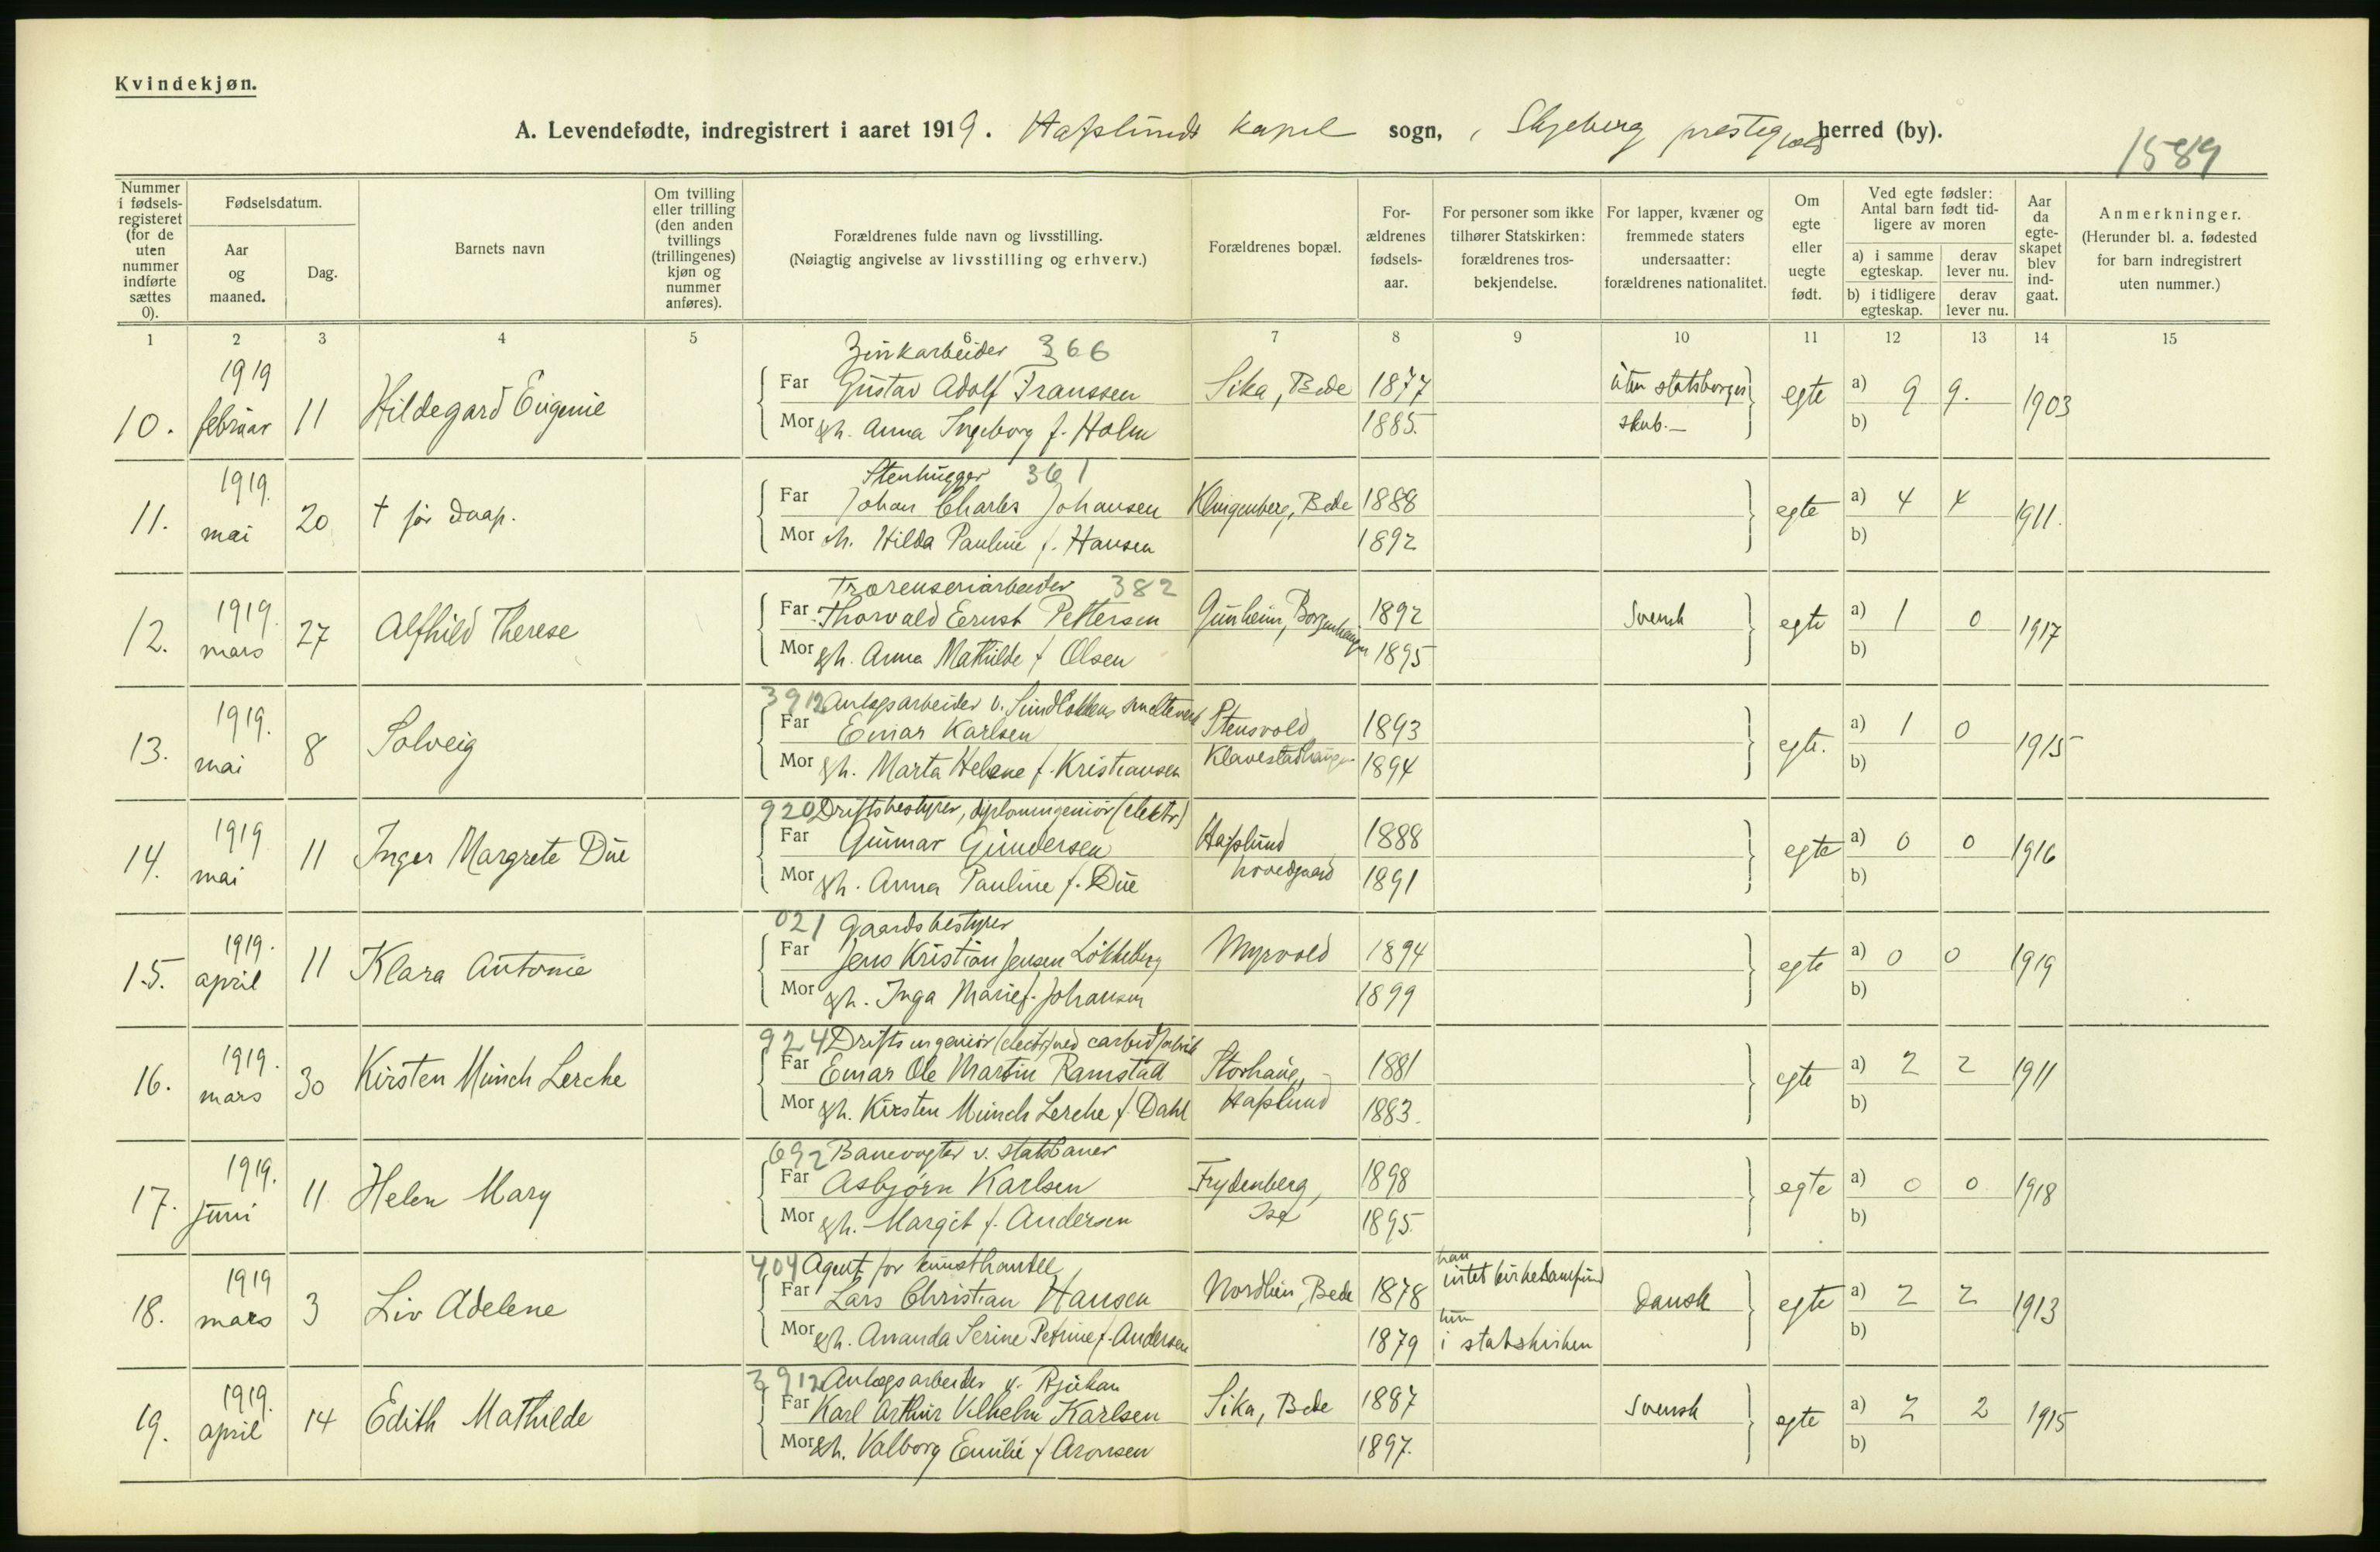 Kvindekjøn.
A. Levendefødte, indregistrert i aaret 1919. Hafslunds kapel sogn, i Skjeberg prestegjeld herred (by).
1589
Nummer i fødselsregisteret (for de uten nummer indførte sættes 0).
Fødselsdatum.
Aar og maaned.
Dag.
Barnets navn
Om tvilling eller trilling (den anden tvillings (trillingenes) kjøn og nummer anføres).
Forældrenes fulde navn og livsstilling.
(Nøiagtig angivelse av livsstilling og erhverv.)
Forældrenes bopæl.
Forældrenes fødselsaar.
For personer som ikke tilhører Statskirken: forældrenes trosbekjendelse.
For lapper, kvæner og fremmede staters undersaatter: forældrenes nationalitet.
Om egte eller uegte født.
Ved egte fødsler: Antal barn født tidligere av moren
a) i samme egteskap. derav lever nu.
b) i tidligere egteskap. derav lever nu.
Aar da egteskapet blev indgaat.
Anmerkninger.
(Herunder bl. a. fødested for barn indregistrert uten nummer.)
1 2 3 4 5 6 7 8 9 10 11 12 13 14 15
Zinkarbeider 366
10. 1919 februar 11 Hildegard Eugenie Far Gustav Adolf Franssen Sika, Bede 1877 uten statsborgerskab.— egte a) 9 9. 1903
Mor gh. Anna Ingeborg f. Holm 1885. b)
Stenhugger 361
11. 1919. mai 20 † før daap. Far Johan Charles Johansen Klingenberg, Bede 1888 egte a) 4 4 1911.
Mor gh. Hilda Pauline f. Hansen 1892 b)
Træsenseriarbeider 382
12. 1919. mars 27 Alfhild Therese Far Thorvald Ernst Pettersen Gunheim, Borgenhaugen 1892 Svensk egte a) 1 0 1917
Mor gh. Anna Mathilde f Olsen 1895 b)
3912 Anlægsarbeider v. Sundløkkens smelteverk
13. 1919. mai 8 Solveig Far Einar Karlsen Stensvold Klavestadhaugen 1893 egte. a) 1 0 1915
Mor gh. Marta Helene f. Kristiansen 1894 b)
920 Driftsbestyrer, diplomingeniør (elektr)
14. 1919 mai 11 Inger Margrete Due Far Gunnar Gundersen Hafslund hovedgaard 1888 egte a) 0 0 1916
Mor gh. Anna Pauline f. Due 1891 b)
021 Gaardsbestyrer
15. 1919. april 11 Klara Antonie Far Jens Kristian Jensen Løkkeberg Myrvold 1894 egte a) 0 0 1919
Mor gh. Inga Marie f. Johansen 1899 b)
924 Driftsingeniør (elektr) ved carbidfabrik
16. 1919. mars 30 Kirsten Munch Lerche Far Einar Ole Martin Ramstad Storhaug, Hafslund 1881 egte a) 2 2 1911
Mor gh. Kirsten Munch Lerche f. Dahl 1883. b)
692 Banevogter v. statsbaner
17. 1919. juni 11 Helen Mary Far Asbjørn Karlsen Frydenberg, Ise 1898 egte a) 0 0 1918
Mor gh. Margit f. Andersen 1895. b)
404 Agent for kunsthandel
18. 1919 mars 3 Liv Adelene Far Lars Christian Hansen Nordhein, Bede 1878 han intet kirkesamfund Dansk egte a) 2 2 1913
Mor gh. Ananda Serine Petrine f. Andersen 1879 hun i statskirken b)
3912 Anlægsarbeider v. Rjukan
19. 1919. april 14 Edith Mathilde Far Karl Arthur Vilhelm Karlsen Sika, Bede 1887 Svensk egte a) 2 2 1915
Mor gh. Valborg Emilie f Aronsen 1897. b)